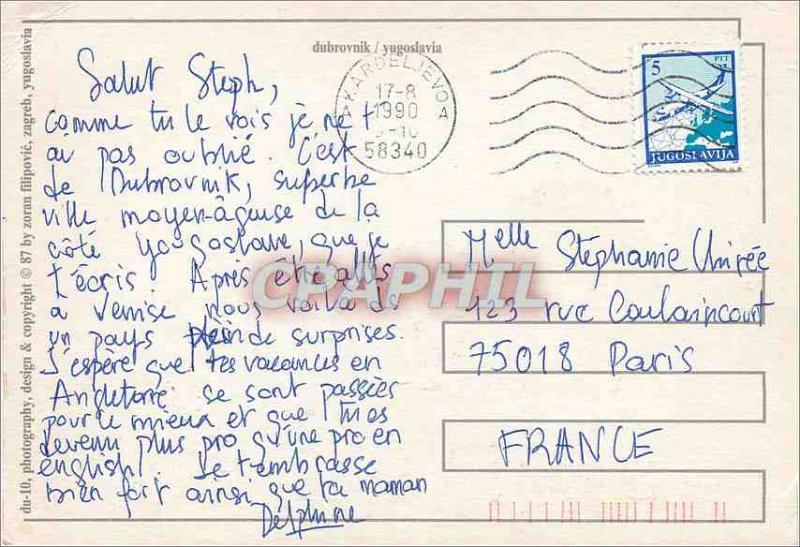 dubrovnik / yugoslavia
Salut Steph,
comme tu le vois je ne t
ai pas oublié. C'est
de Dubrovnik, superbe
ville moyen-âgeuse de la
côte yougoslave, que je
t'écris. Après être allés
à Venise nous voilà ds
un pays plein de surprises.
J'espère que tes vacances en
Angleterre se sont passées
pour le mieux et que tu es
devenu plus pro qu'une pro en
english! Je t'embrasse
bien fort ainsi que ta maman
Delphine
KARDELJEVO
17-8
1990
58340
5 PTT
JUGOSLAVIJA
Melle Stéphanie
123 rue Caulaincourt
75018 Paris
FRANCE
du-10, photography, design & copyright © 87 by zoran filipović, zagreb, yugoslavia
CPAPHIL